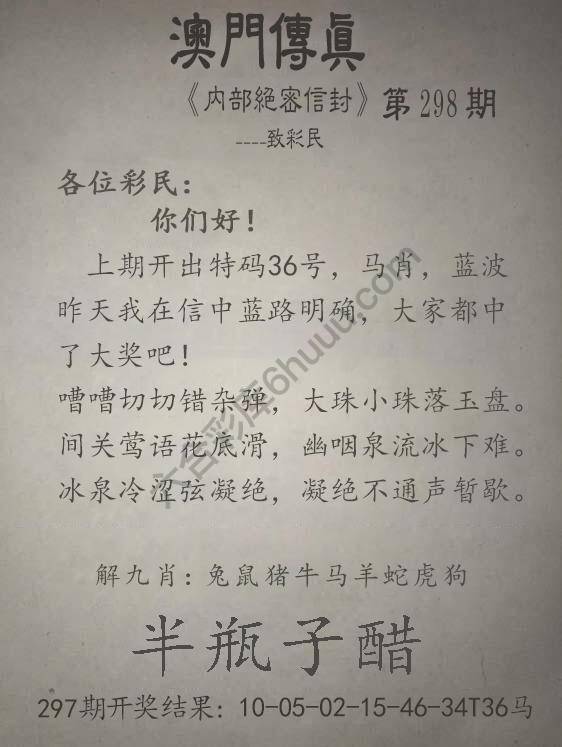 澳門傳眞
《内部絕密信封》第298期
----致彩民
各位彩民：
你们好！
上期开出特码36号，马肖，蓝波
昨天我在信中蓝路明确，大家都中
了大奖吧！
嘈嘈切切错杂弹，大珠小珠落玉盘。
间关莺语花底滑，幽咽泉流冰下难。
冰泉冷涩弦凝绝，凝绝不通声暂歇。
解九肖：兔鼠猪牛马羊蛇虎狗
半瓶子醋
297期开奖结果：10-05-02-15-46-34T36马
六合彩库6huuu.com